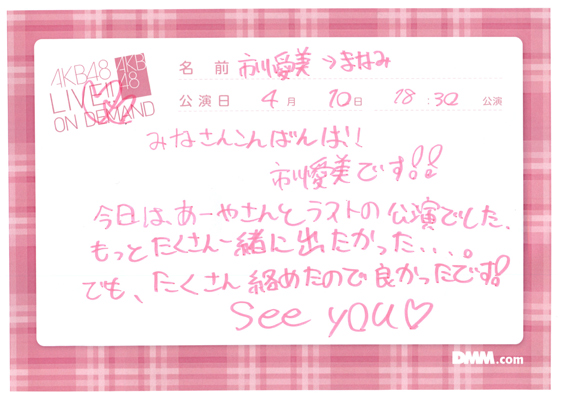 AKB48
LIVE!!
ON DEMAND
AKB
48
名前 市川愛美→まなみ
公演日 4月 10日 18:30 公演
みなさんこんばんは!!
市川愛美です!!
今日は、あーやさんとラストの公演でした、
もっとたくさん一緒に出たかった、、、。
でも、たくさん絡めたので良かったです!!
See you♡
DMM.com